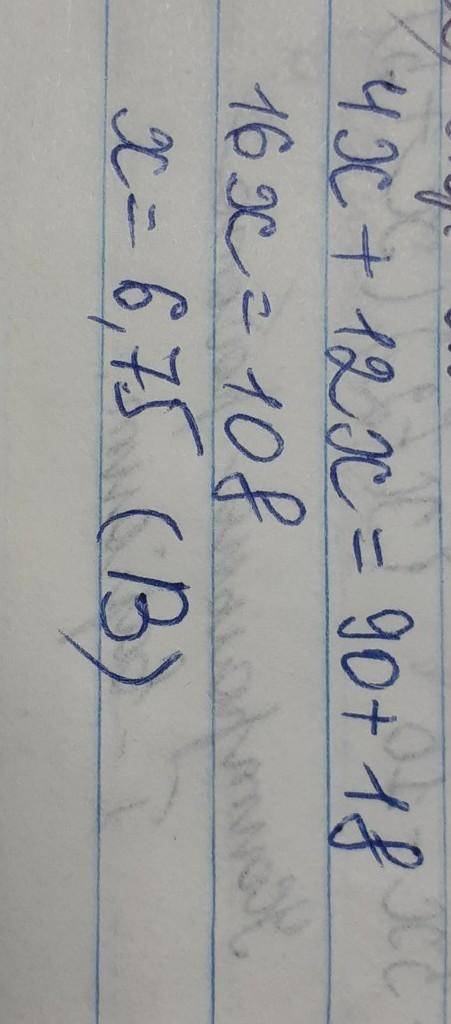 4x + 12x = 90 + 18
16x = 108
x = 6,75 (B)